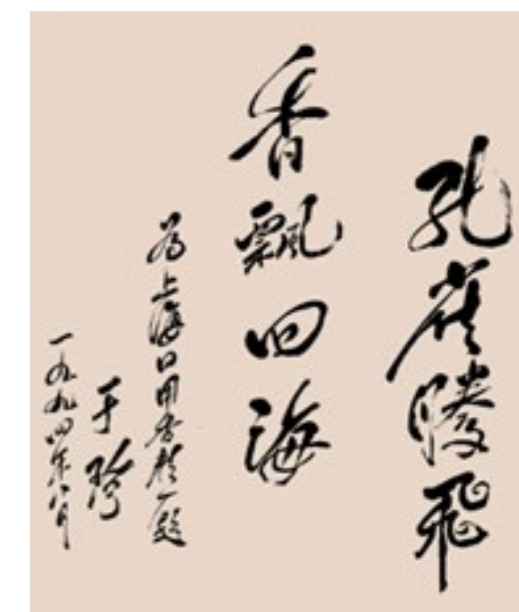 孔雀腾飞
香飘四海
为上海日用香精题
于玲
一九九四年八月